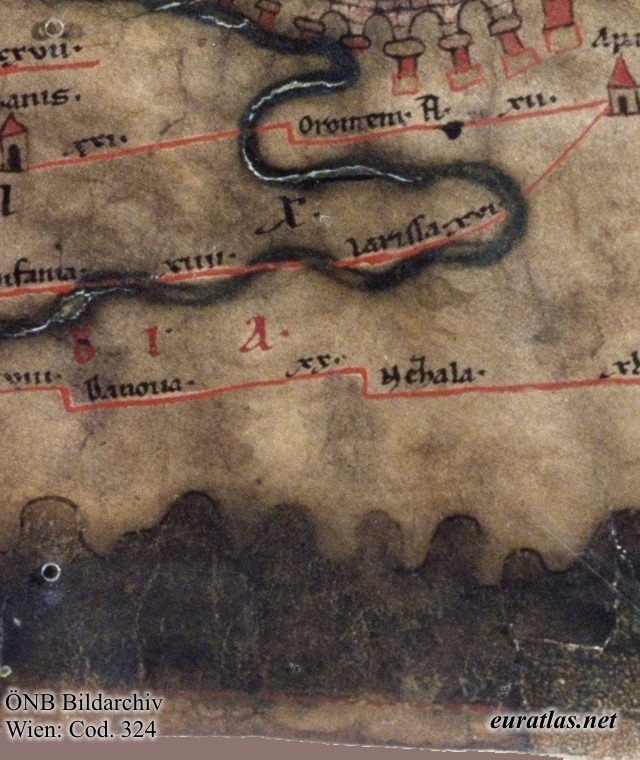 xvii·
anis·
xxi·
Orontem· fl·
xii·
X·
Larissa·xvi·
ifania·
xiiii·
B I A·
viii·
Bavona·
xx·
ÖNB Bildarchiv
Wien: Cod. 324
euratlas.net